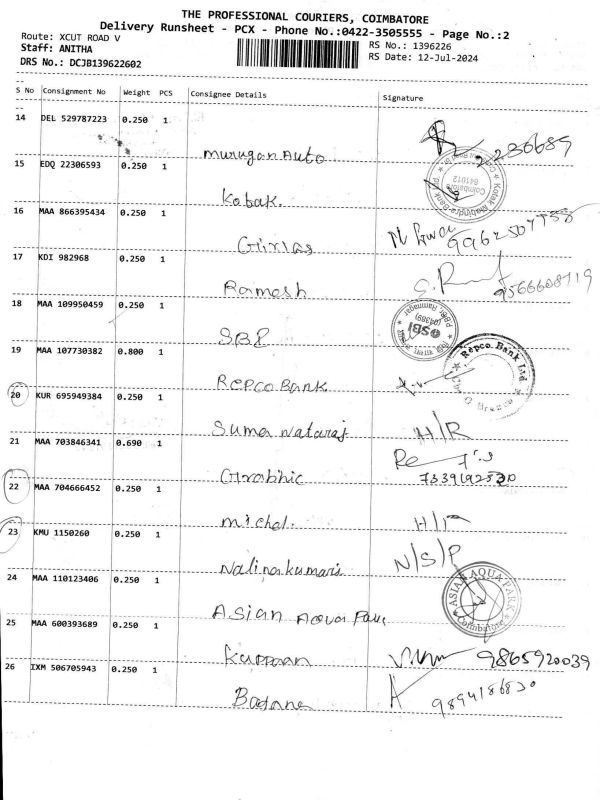 THE PROFESSIONAL COURIERS, COIMBATORE
Delivery Runsheet - PCX - Phone No.:0422-3505555 - Page No.:2
Route: XCUT ROAD V
RS No.: 1396226
Staff: ANITHA
RS Date: 12-Jul-2024
DRS No.: DCJB139622602
S No Consignment No Weight PCS Consignee Details Signature
14 DEL 529787223 0.250 1
Murugan Auto
15 EDQ 22306593 0.250 1
Kotak.
16 MAA 866395434 0.250 1
Girias
17 KDI 982968 0.250 1
Ramesh
9566608719
18 MAA 109950459 0.250 1
SBI
19 MAA 107730382 0.800 1
Repco Bank
Repco Bank Ltd
20 KUR 695949384 0.250 1
Suma Nataraj
H/R
21 MAA 703846341 0.690 1
22 MAA 704666452 0.250 1
Michel.
23 KMU 1150260 0.250 1
Nalinakumari
N/S/P
24 MAA 110123406 0.250 1
Asian Aqua Park
ASIAN AQUA PARK
Coimbatore
25 MAA 600393689 0.250 1
Kuppan
9865920039
26 IXM 506705943 0.250 1
9894186830